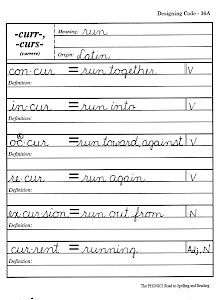 Designing Code - 36A
-curr-,
-curs-
(currere)
Meaning: run
Origin: Latin
con·cur = run together V
Definition:
in·cur = run into V
Definition:
oc·cur = run toward, against V
Definition:
re·cur = run again V
Definition:
ex·cur·sion = run out from N
Definition:
cur·rent = running Adj, N
Definition:
The PHONICS Road to Spelling and Reading